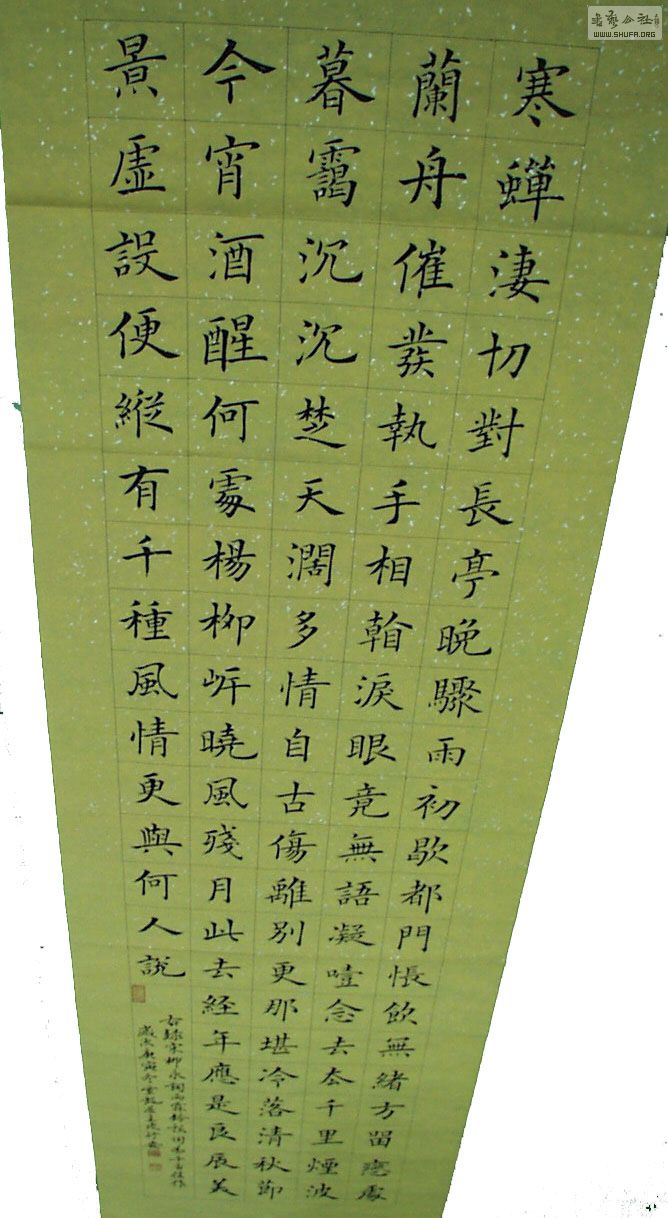 寒蟬淒切對長亭晚驟雨初歇都門悵飲無緒方留戀處
蘭舟催發執手相看淚眼竟無語凝噎念去厺千里煙波
暮靄沉沉楚天濶多情自古傷離別更那堪冷落清秋節
今宵酒醒何處楊柳岸曉風殘月此去經年應是良辰美
景虛設便縱有千種風情更與何人說
右錄宋柳永詞雨霖鈴
歲次庚寅冬
書藝公社
WWW.SHUFA.ORG